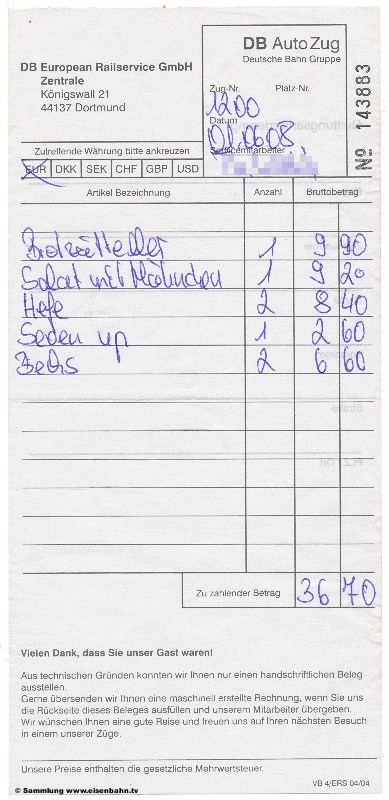 DB European Railservice GmbH
Zentrale
Königswall 21
44137 Dortmund
DB AutoZug
Deutsche Bahn Gruppe
Zug-Nr. Platz-Nr.
1200
Datum
01.06 08
Servicemitarbeiter
No 143883
Zutreffende Währung bitte ankreuzen
EUR DKK SEK CHF GBP USD
Artikel Bezeichnung Anzahl Bruttobetrag
1 9 90
Salat mit 1 9 20
Hefe 2 8 40
Seven up 1 2 60
Becks 2 6 60
Zu zahlender Betrag 36 70
Vielen Dank, dass Sie unser Gast waren!
Aus technischen Gründen konnten wir Ihnen nur einen handschriftlichen Beleg
ausstellen.
Gerne übersenden wir Ihnen eine maschinell erstellte Rechnung, wenn Sie uns
die Rückseite dieses Beleges ausfüllen und unserem Mitarbeiter übergeben.
Wir wünschen Ihnen eine gute Reise und freuen uns auf Ihren nächsten Besuch
in einem unserer Züge.
Unsere Preise enthalten die gesetzliche Mehrwertsteuer.
VB 4/ERS 04/04
© Sammlung www.eisenbahn.tv